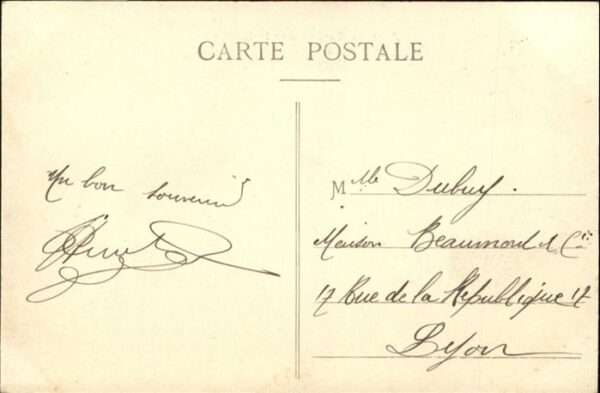 CARTE POSTALE
Un bon souvenir
Mlle Dubuy.
Maison Beaumond & Cie
17 Rue de la République 17
Lyon